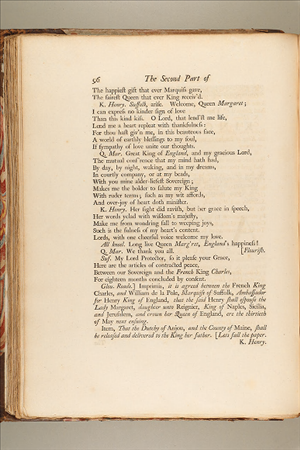 56 The Second Part of
The happiest gift that ever Marquiss gave,
The fairest Queen that ever King receiv'd.
K. Henry. Suffolk, arise. Welcome, Queen Margaret;
I can express no kinder sign of love
Than this kind kiss. O Lord, that lend'st me life,
Lend me a heart repleat with thankfulness:
For thou hast giv'n me, in this beauteous face,
A world of earthly blessings to my soul,
If sympathy of love unite our thoughts.
Q. Mar. Great King of England, and my gracious Lord,
The mutual conf'rence that my mind hath had,
By day, by night, waking, and in my dreams,
In courtly company, or at my beads,
With you mine alder-liefest Sovereign;
Makes me the bolder to salute my King
With ruder terms; such as my wit affords,
And over-joy of heart doth minister.
K. Henry. Her sight did ravish, but her grace in speech,
Her words yclad with wisdom's majesty,
Make me from wondring fall to weeping joys,
Such is the fulness of my heart's content.
Lords, with one cheerful voice welcome my love.
All kneel. Long live Queen Marg'ret, England's happiness!
Q. Mar. We thank you all. [Flourish.
Suf. My Lord Protector, so it please your Grace,
Here are the articles of contracted peace,
Between our Sovereign and the French King Charles,
For eighteen months concluded by consent.
Glou. Reads.] Imprimis, it is agreed between the French King
Charles, and William de la Pole, Marquiss of Suffolk, Ambassador
for Henry King of England, that the said Henry shall espouse the
Lady Margaret, daughter unto Reignier, King of Naples, Sicilia,
and Jerusalem, and crown her Queen of England, ere the thirtieth
of May next ensuing.
Item, That the Dutchy of Anjou, and the County of Maine, shall
be released and delivered to the King her father. [Lets fall the paper.
K. Henry.